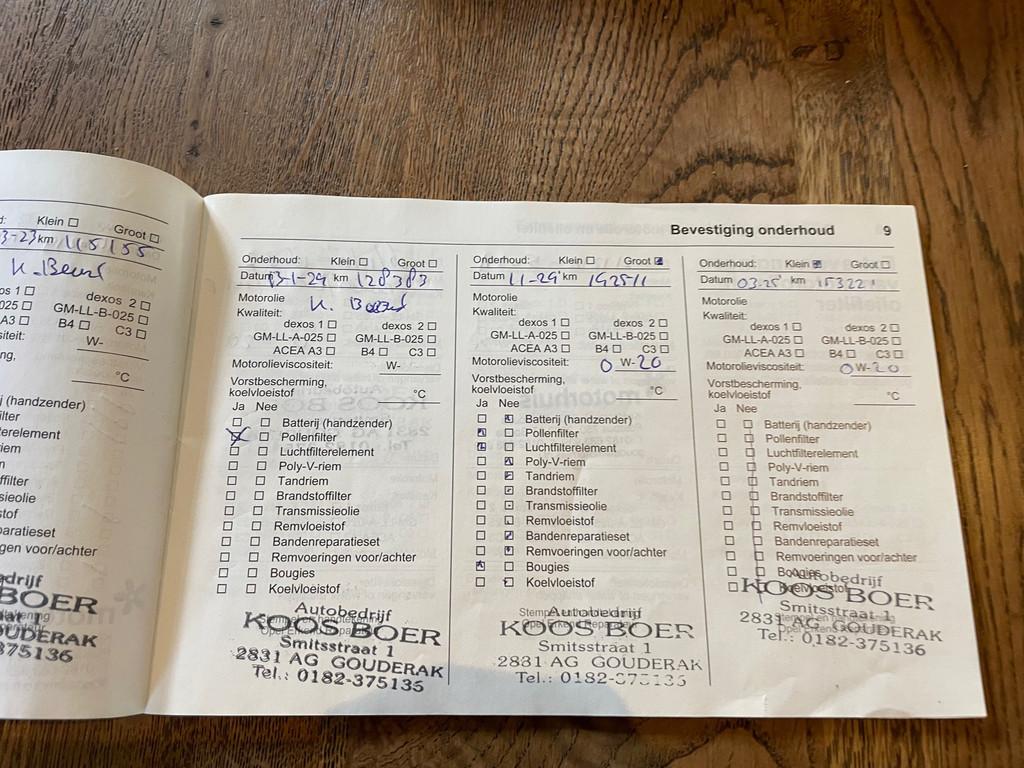 d: Klein ☐ Groot ☐
3-23 km 115155
K. Beurs
os 1 ☐ dexos 2 ☐
025 ☐ GM-LL-B-025 ☐
A3 ☐ B4 ☐ C3 ☐
siteit: W-
ng,
°C
j (handzender)
ilter
terelement
riem
n
ffilter
ssieolie
stof
paratieset
gen voor/achter
drijf
BOER
at 1
OUDERAK
375136
Bevestiging onderhoud 9
Onderhoud: Klein ☐ Groot ☐
Datum 03-1-24 km 128383
Motorolie
Kwaliteit:
dexos 1 ☐ dexos 2 ☐
GM-LL-A-025 ☐ GM-LL-B-025 ☐
ACEA A3 ☐ B4 ☐ C3 ☐
Motorolieviscositeit: W-
Vorstbescherming,
koelvloeistof °C
Ja Nee
☐ ☐ Batterij (handzender)
☒ ☐ Pollenfilter
☐ ☐ Luchtfilterelement
☐ ☐ Poly-V-riem
☐ ☐ Tandriem
☐ ☐ Brandstoffilter
☐ ☐ Transmissieolie
☐ ☐ Remvloeistof
☐ ☐ Bandenreparatieset
☐ ☐ Remvoeringen voor/achter
☐ ☐ Bougies
☐ ☐ Koelvloeistof
Autobedrijf
KOOS BOER
Smitsstraat 1
2831 AG GOUDERAK
Tel.: 0182-375136
Onderhoud: Klein ☐ Groot ☒
Datum 11-24 km
Motorolie
Kwaliteit:
dexos 1 ☐ dexos 2 ☐
GM-LL-A-025 ☐ GM-LL-B-025 ☐
ACEA A3 ☐ B4 ☐ C3 ☐
Motorolieviscositeit: 0 W-20
Vorstbescherming,
koelvloeistof °C
Ja Nee
☐ ☒ Batterij (handzender)
☒ ☐ Pollenfilter
☒ ☐ Luchtfilterelement
☐ ☒ Poly-V-riem
☐ ☒ Tandriem
☐ ☒ Brandstoffilter
☐ ☒ Transmissieolie
☐ ☒ Remvloeistof
☐ ☒ Bandenreparatieset
☐ ☒ Remvoeringen voor/achter
☒ ☐ Bougies
☐ ☒ Koelvloeistof
Autobedrijf
KOOS BOER
Smitsstraat 1
2831 AG GOUDERAK
Tel.: 0182-375136
Onderhoud: Klein ☒ Groot ☐
Datum 03-25 km 153221
Motorolie
Kwaliteit:
dexos 1 ☐ dexos 2 ☐
GM-LL-A-025 ☐ GM-LL-B-025 ☐
ACEA A3 ☐ B4 ☐ C3 ☐
Motorolieviscositeit: 0 W-20
Vorstbescherming,
koelvloeistof °C
Ja Nee
☐ ☐ Batterij (handzender)
☐ ☐ Pollenfilter
☐ ☐ Luchtfilterelement
☐ ☐ Poly-V-riem
☐ ☐ Tandriem
☐ ☐ Brandstoffilter
☐ ☐ Transmissieolie
☐ ☐ Remvloeistof
☐ ☐ Bandenreparatieset
☐ ☐ Remvoeringen voor/achter
☐ ☐ Bougies
☐ ☐ Koelvloeistof
Autobedrijf
KOOS BOER
Smitsstraat 1
2831 AG GOUDERAK
Tel.: 0182-375136